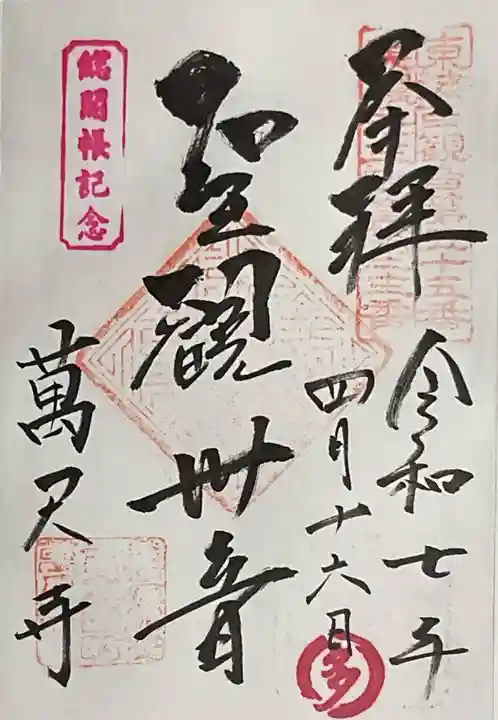 奉拝
令和七年
四月十六日
聖観世音
萬尺寺
総開帳記念
多